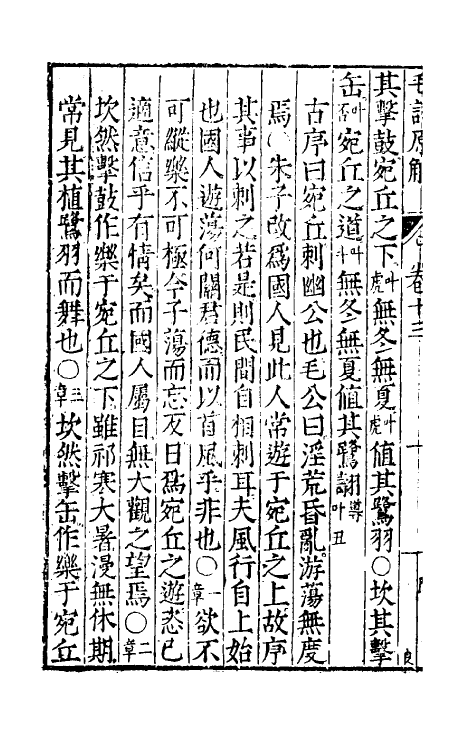 毛詩原解 卷十三
其擊鼓宛丘之下叶虎無冬無夏叶虎値其鷺羽○坎其擊
缶叶否宛丘之道叶斗無冬無夏值其鷺翿導叶丑
古序曰宛丘刺幽公也毛公曰淫荒昏亂游蕩無度
焉○朱子改爲國人見此人常遊于宛丘之上故序
其事以刺之若是則民間自相刺耳夫風行自上始
也國人遊蕩何關君德而以首風乎非也○一章欲不
可縱樂不可極今子蕩而忘反日爲宛丘之遊恣已
適意信乎有情矣而國人屬目無大觀之望焉○二章
坎然擊鼓作樂于宛丘之下雖祁寒大暑漫無休期
常見其植鷺羽而舞也○三章坎然擊缶作樂于宛丘